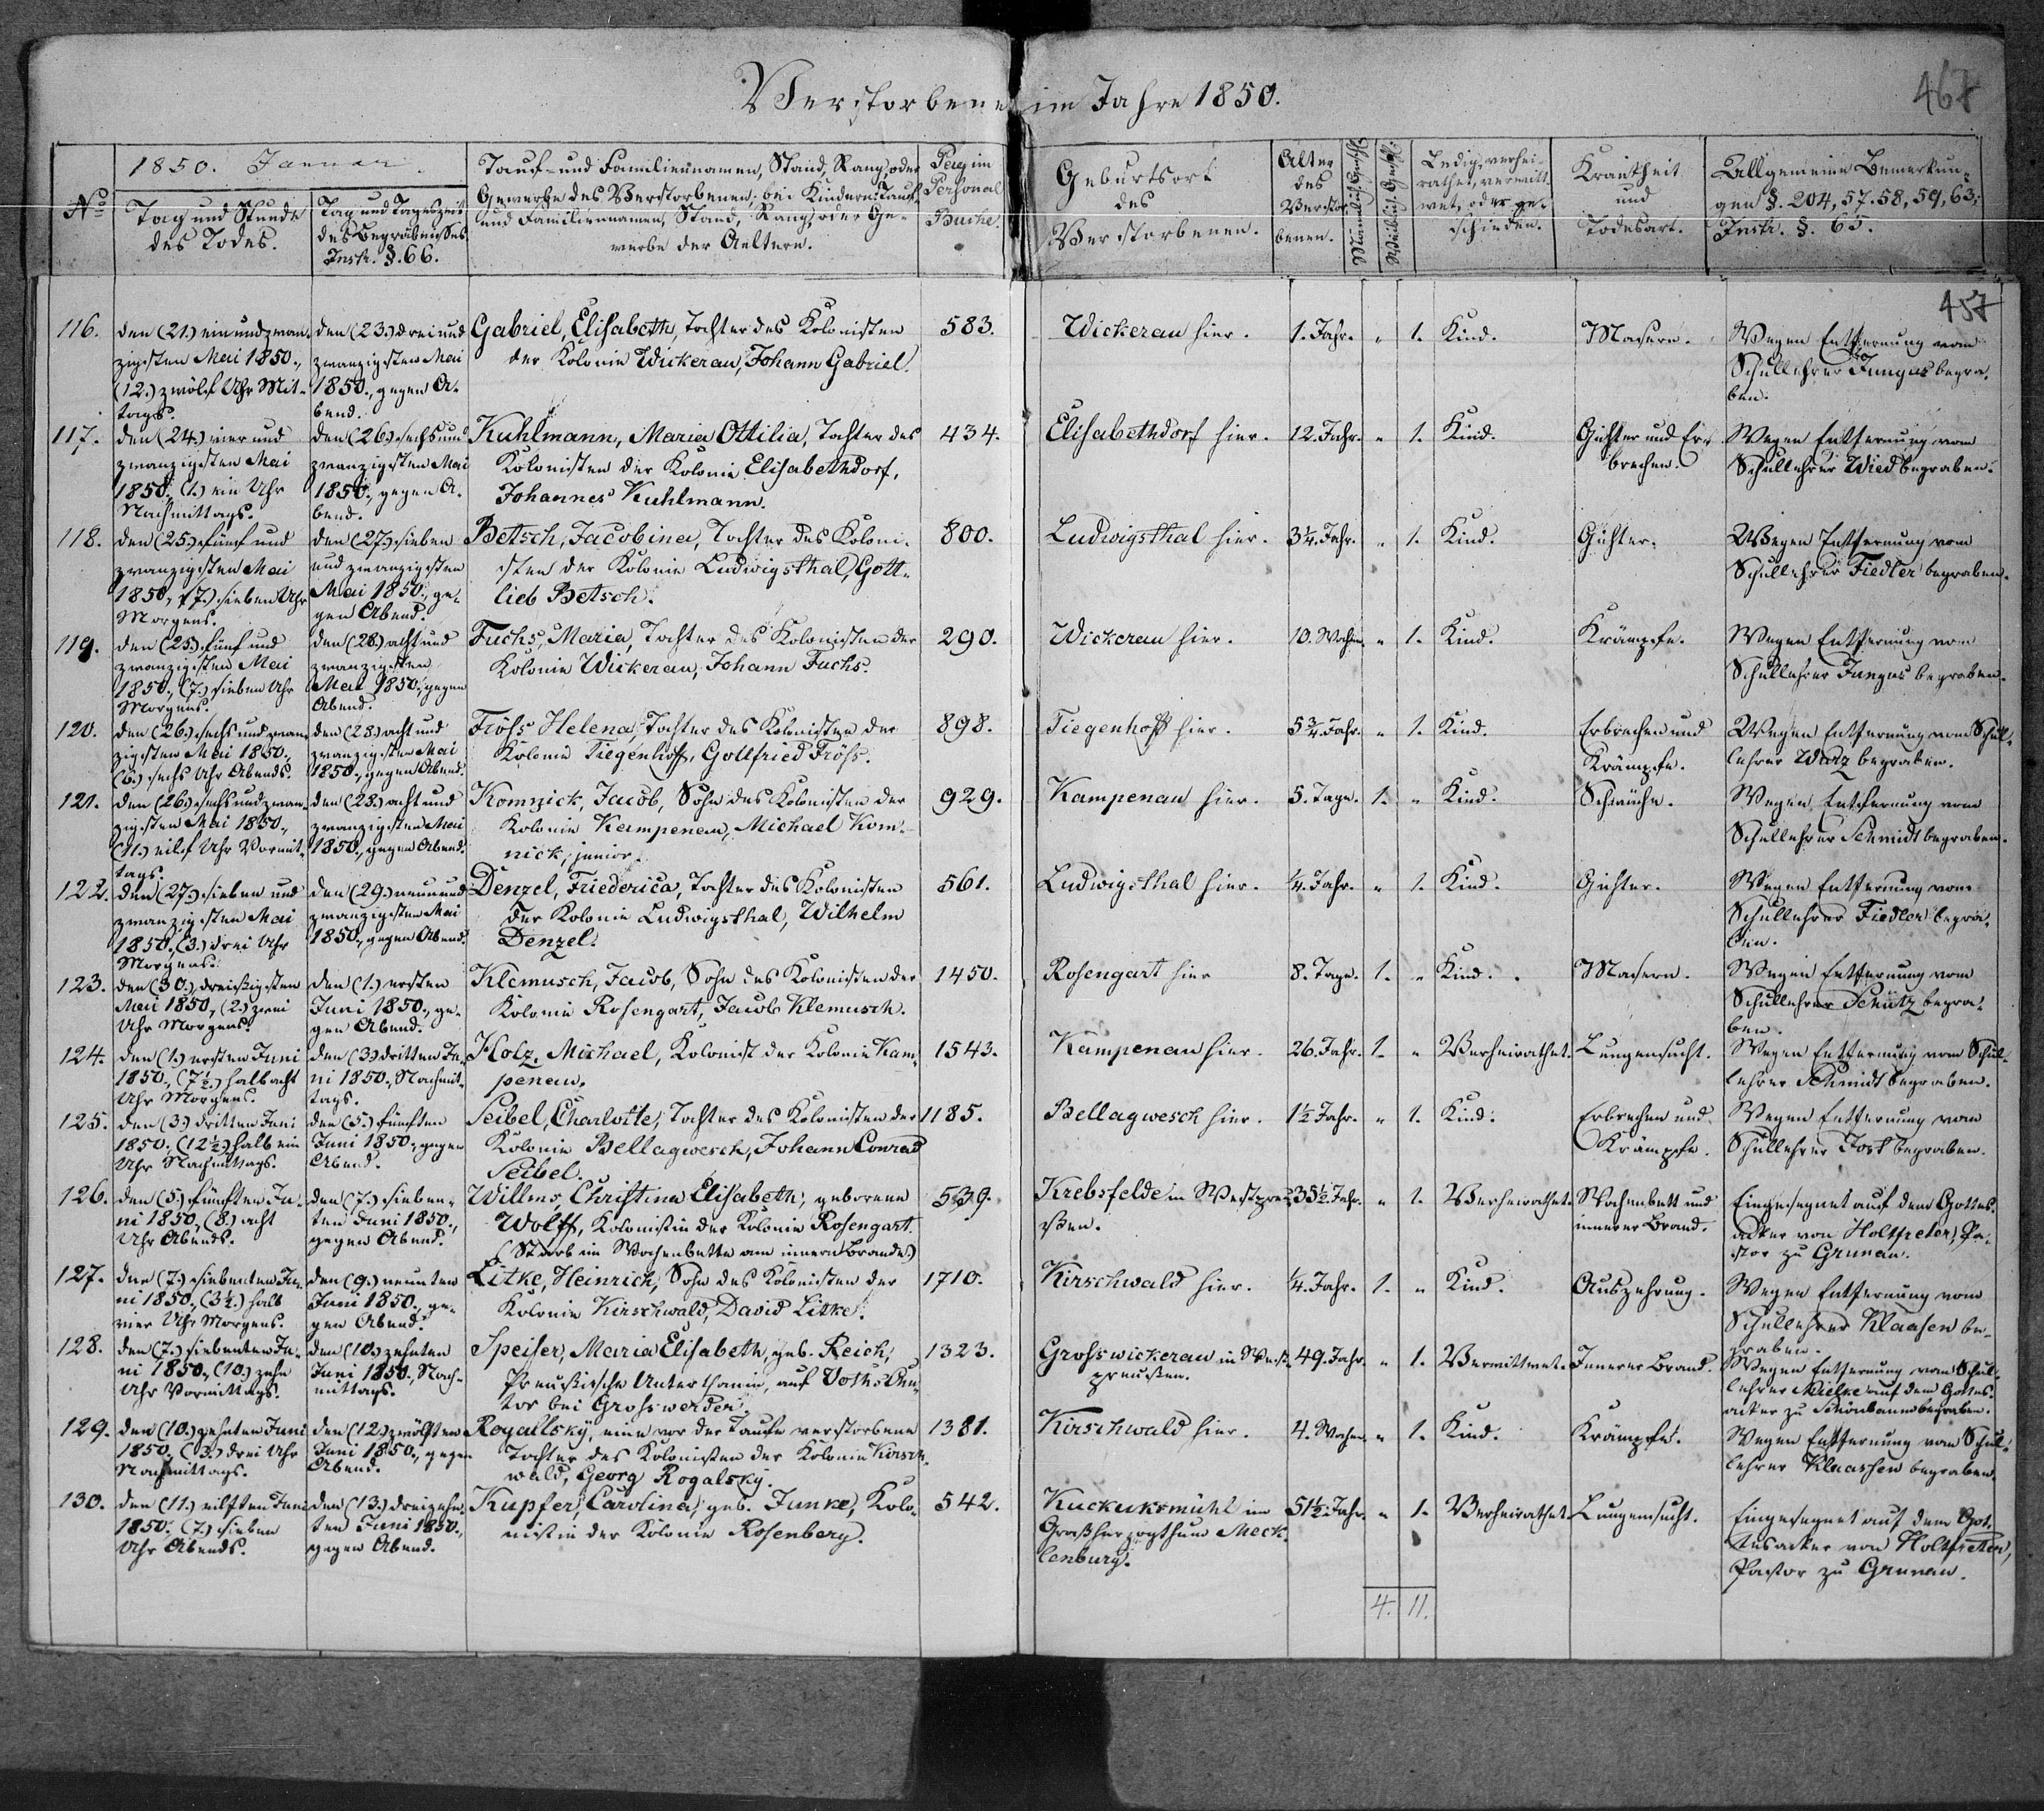 Verstorbene im Jahre 1850.
467
No
1850. Januar
Tag und Stunde
des Todes.
Tag und Tageszeit
des Begräbnisses
Instr. §. 66.
Tauf- und Familiennamen, Stand, Rang, oder
Gewerbe des Verstorbenen; bei Kindern: Tauf-
und Familiennamen, Stand, Rang, oder Ge-
werbe der Aeltern.
Pag im
Personal
Buche.
Geburtsort
des
Verstorbenen.
Alter
des
Verstor-
benen.
Männlich. Geschl.
Weiblich. Geschl.
Ledig, verhei-
rathet, verwitt-
wet, oder ge-
schieden.
Krankheit
und
Todesart.
Allgemeine Bemerkun-
gen §. 204, 57. 58, 59, 63;
Instr. §. 65.
457
116.
den (21.) einundzwan-
zigsten Mai 1850.,
(12.) zwölf Uhr Mit-
tags.
den (23.) drei und
zwanzigsten Mai
1850., gegen A-
bend.
Gabriel, Elisabeth, Tochter des Kolonisten
der Kolonie Wickerau, Johann Gabriel.
583.
Wickerau hier.
1. Jahr.
„
1.
Kind.
Masern.
Wegen Entfernung vom
Schullehrer Jungus begra-
ben.
117.
den (24.) vier und
zwanzigsten Mai
1850., (1.) ein Uhr
Nachmittags.
den (26.) sechs und
zwanzigsten Mai
1850., gegen A-
bend.
Kuhlmann, Maria Ottilia, Tochter des
Kolonisten der Kolonie Elisabethdorf,
Johannes Kuhlmann.
434.
Elisabethdorf hier.
12. Jahr.
„
1.
Kind.
Gichter und Er-
brechen.
Wegen Entfernung vom
Schullehrer Wied begraben.
118.
den (25.) fünf und
zwanzigsten Mai
1850., (7.) sieben Uhr
Morgens.
den (27.) sieben
und zwanzigsten
Mai 1850., ge-
gen Abend.
Betsch, Jacobina, Tochter des Koloni-
sten der Kolonie Ludwigsthal, Gott-
lieb Betsch.
800.
Ludwigsthal hier.
3¼. Jahr.
„
1.
Kind.
Gichter.
Wegen Entfernung vom
Schullehrer Fiedler begraben.
119.
den (25.) fünf und
zwanzigsten Mai
1850., (7.) sieben Uhr
Morgens.
den (28.) acht und
zwanzigsten
Mai 1850., gegen
Abend.
Fuchs, Maria, Tochter des Kolonisten der
Kolonie Wickerau, Johann Fuchs.
290.
Wickerau hier.
10. Wochen.
„
1.
Kind.
Krämpfe.
Wegen Entfernung vom
Schullehrer Jungus begraben.
120.
den (26.) sechs und zwan-
zigsten Mai 1850.,
(6.) sechs Uhr Abends.
den (28.) acht und
zwanzigsten Mai
1850., gegen Abend.
Fröhs, Helena, Tochter des Kolonisten der
Kolonie Tiegenhoff, Gottfried Fröhs.
898.
Tiegenhoff hier.
5¾. Jahr.
„
1.
Kind.
Erbrechen und
Krämpfe.
Wegen Entfernung vom Schul-
lehrer Wurz begraben.
121.
den (26.) sechs und zwan-
zigsten Mai 1850.,
(11.) eilf Uhr Vormit-
tags.
den (28.) acht und
zwanzigsten Mai
1850., gegen Abend.
Komnick, Jacob, Sohn des Kolonisten der
Kolonie Kampenau, Michael Kom-
nick, junior.
929.
Kampenau hier.
5. Tage.
1.
„
Kind.
Schwäche.
Wegen Entfernung vom
Schullehrer Schmidt begraben.
122.
den (27.) sieben und
zwanzigsten Mai
1850., (3.) drei Uhr
Morgens.
den (29.) neun und
zwanzigsten Mai
1850., gegen Abend.
Denzel, Friederica, Tochter des Kolonisten
der Kolonie Ludwigsthal, Wilhelm
Denzel.
561.
Ludwigsthal hier.
¼. Jahr.
„
1.
Kind.
Gichter.
Wegen Entfernung vom
Schullehrer Fiedler begra-
ben.
123.
den (30.) dreißigsten
Mai 1850., (2.) zwei
Uhr Morgens.
den (1.) ersten
Juni 1850., ge-
gen Abend.
Klemusch, Jacob, Sohn des Kolonisten der
Kolonie Rosengart, Jacob Klemusch.
1450.
Rosengart hier
8. Tage.
1.
„
Kind.
Masern.
Wegen Entfernung vom
Schullehrer Schütz begra-
ben.
124.
den (1.) ersten Juni
1850., (7½.) halb acht
Uhr Morgens.
den (3.) dritten Ju-
ni 1850., Nachmit-
tags.
Holz, Michael, Kolonist der Kolonie Kam-
penau.
1543.
Kampenau hier.
26. Jahr.
1.
„
Verheirathet.
Lungensucht.
Wegen Entfernung vom Schul-
lehrer Schmidt begraben.
125.
den (3.) dritten Juni
1850., (12½.) halb ein
Uhr Nachmittags.
den (5.) fünften
Juni 1850., gegen
Abend.
Seibel, Charlotte, Tochter des Kolonisten der
Kolonie Bellagwesch, Johann Conrad
Seibel.
1185.
Bellagwesch hier.
1½ Jahr.
„
1.
Kind.
Erbrechen und
Krämpfe.
Wegen Entfernung vom
Schullehrer Jost begraben.
126.
den (5.) fünften Ju-
ni 1850., (8.) acht
Uhr Abends.
den (7.) sieben-
ten Juni 1850.,
gegen Abend.
Willms, Christina Elisabeth, geborene
Wolff, Kolonistin der Kolonie Rosengart.
(Starb im Wochenbette am innern Brande.)
539.
Krebsfelde in Westpreu-
ßen.
35½. Jahr.
„
1.
Verheirathet.
Wochenbett und
innerer Brand.
Eingesegnet auf dem Gottes-
acker von Holtfreter, Pa-
stor zu Grunau.
127.
den (7.) siebenten Ju-
ni 1850., (3½.) halb
vier Uhr Morgens.
den (9.) neunten
Juni 1850., ge-
gen Abend.
Litke, Heinrich, Sohn des Kolonisten der
Kolonie Kirschwald, David Litke.
1710.
Kirschwald hier.
¼. Jahr.
1.
„
Kind.
Auszehrung.
Wegen Entfernung vom
Schullehrer Klaasen be-
graben.
128.
den (7.) siebenten Ju-
ni 1850., (10.) zehn
Uhr Vormittags.
den (10.) zehnten
Juni 1850., Nach-
mittags.
Speiser, Maria Elisabeth, geb. Reich,
Preußische Unterthanin, auf Voths Chu-
tor bei Grosswerder.
1323.
Grosswickerau in West-
preußen.
49. Jahr.
„
1.
Verwittwet.
Innerer Brand.
Wegen Entfernung vom Schul-
lehrer Mielke auf dem Gottes-
acker zu Schönbaum begraben.
129.
den (10.) zehnten Juni
1850., (3.) drei Uhr
Nachmittags.
den (12.) zwölften
Juni 1850., gegen
Abend.
Rogallsky, eine vor der Taufe verstorbene
Tochter des Kolonisten der Kolonie Kirsch-
wald, Georg Rogalsky.
1381.
Kirschwald hier.
4. Wochen.
„
1.
Kind.
Krämpfe.
Wegen Entfernung vom Schul-
lehrer Klaassen begraben.
130.
den (11.) eilften Juni
1850., (7.) sieben
Uhr Abends.
den (13.) dreizehn-
ten Juni 1850.,
gegen Abend.
Kupfer, Carolina, geb. Junke, Kolo-
nistin der Kolonie Rosenberg.
542.
Kuckuksmühl im
Großherzogthum Meck-
lenburg.
51½. Jahr.
„
1.
Verheirathet.
Lungensucht.
Eingesegnet auf dem Got-
tesacker von Holtfreter,
Pastor zu Grunau.
4.
11.